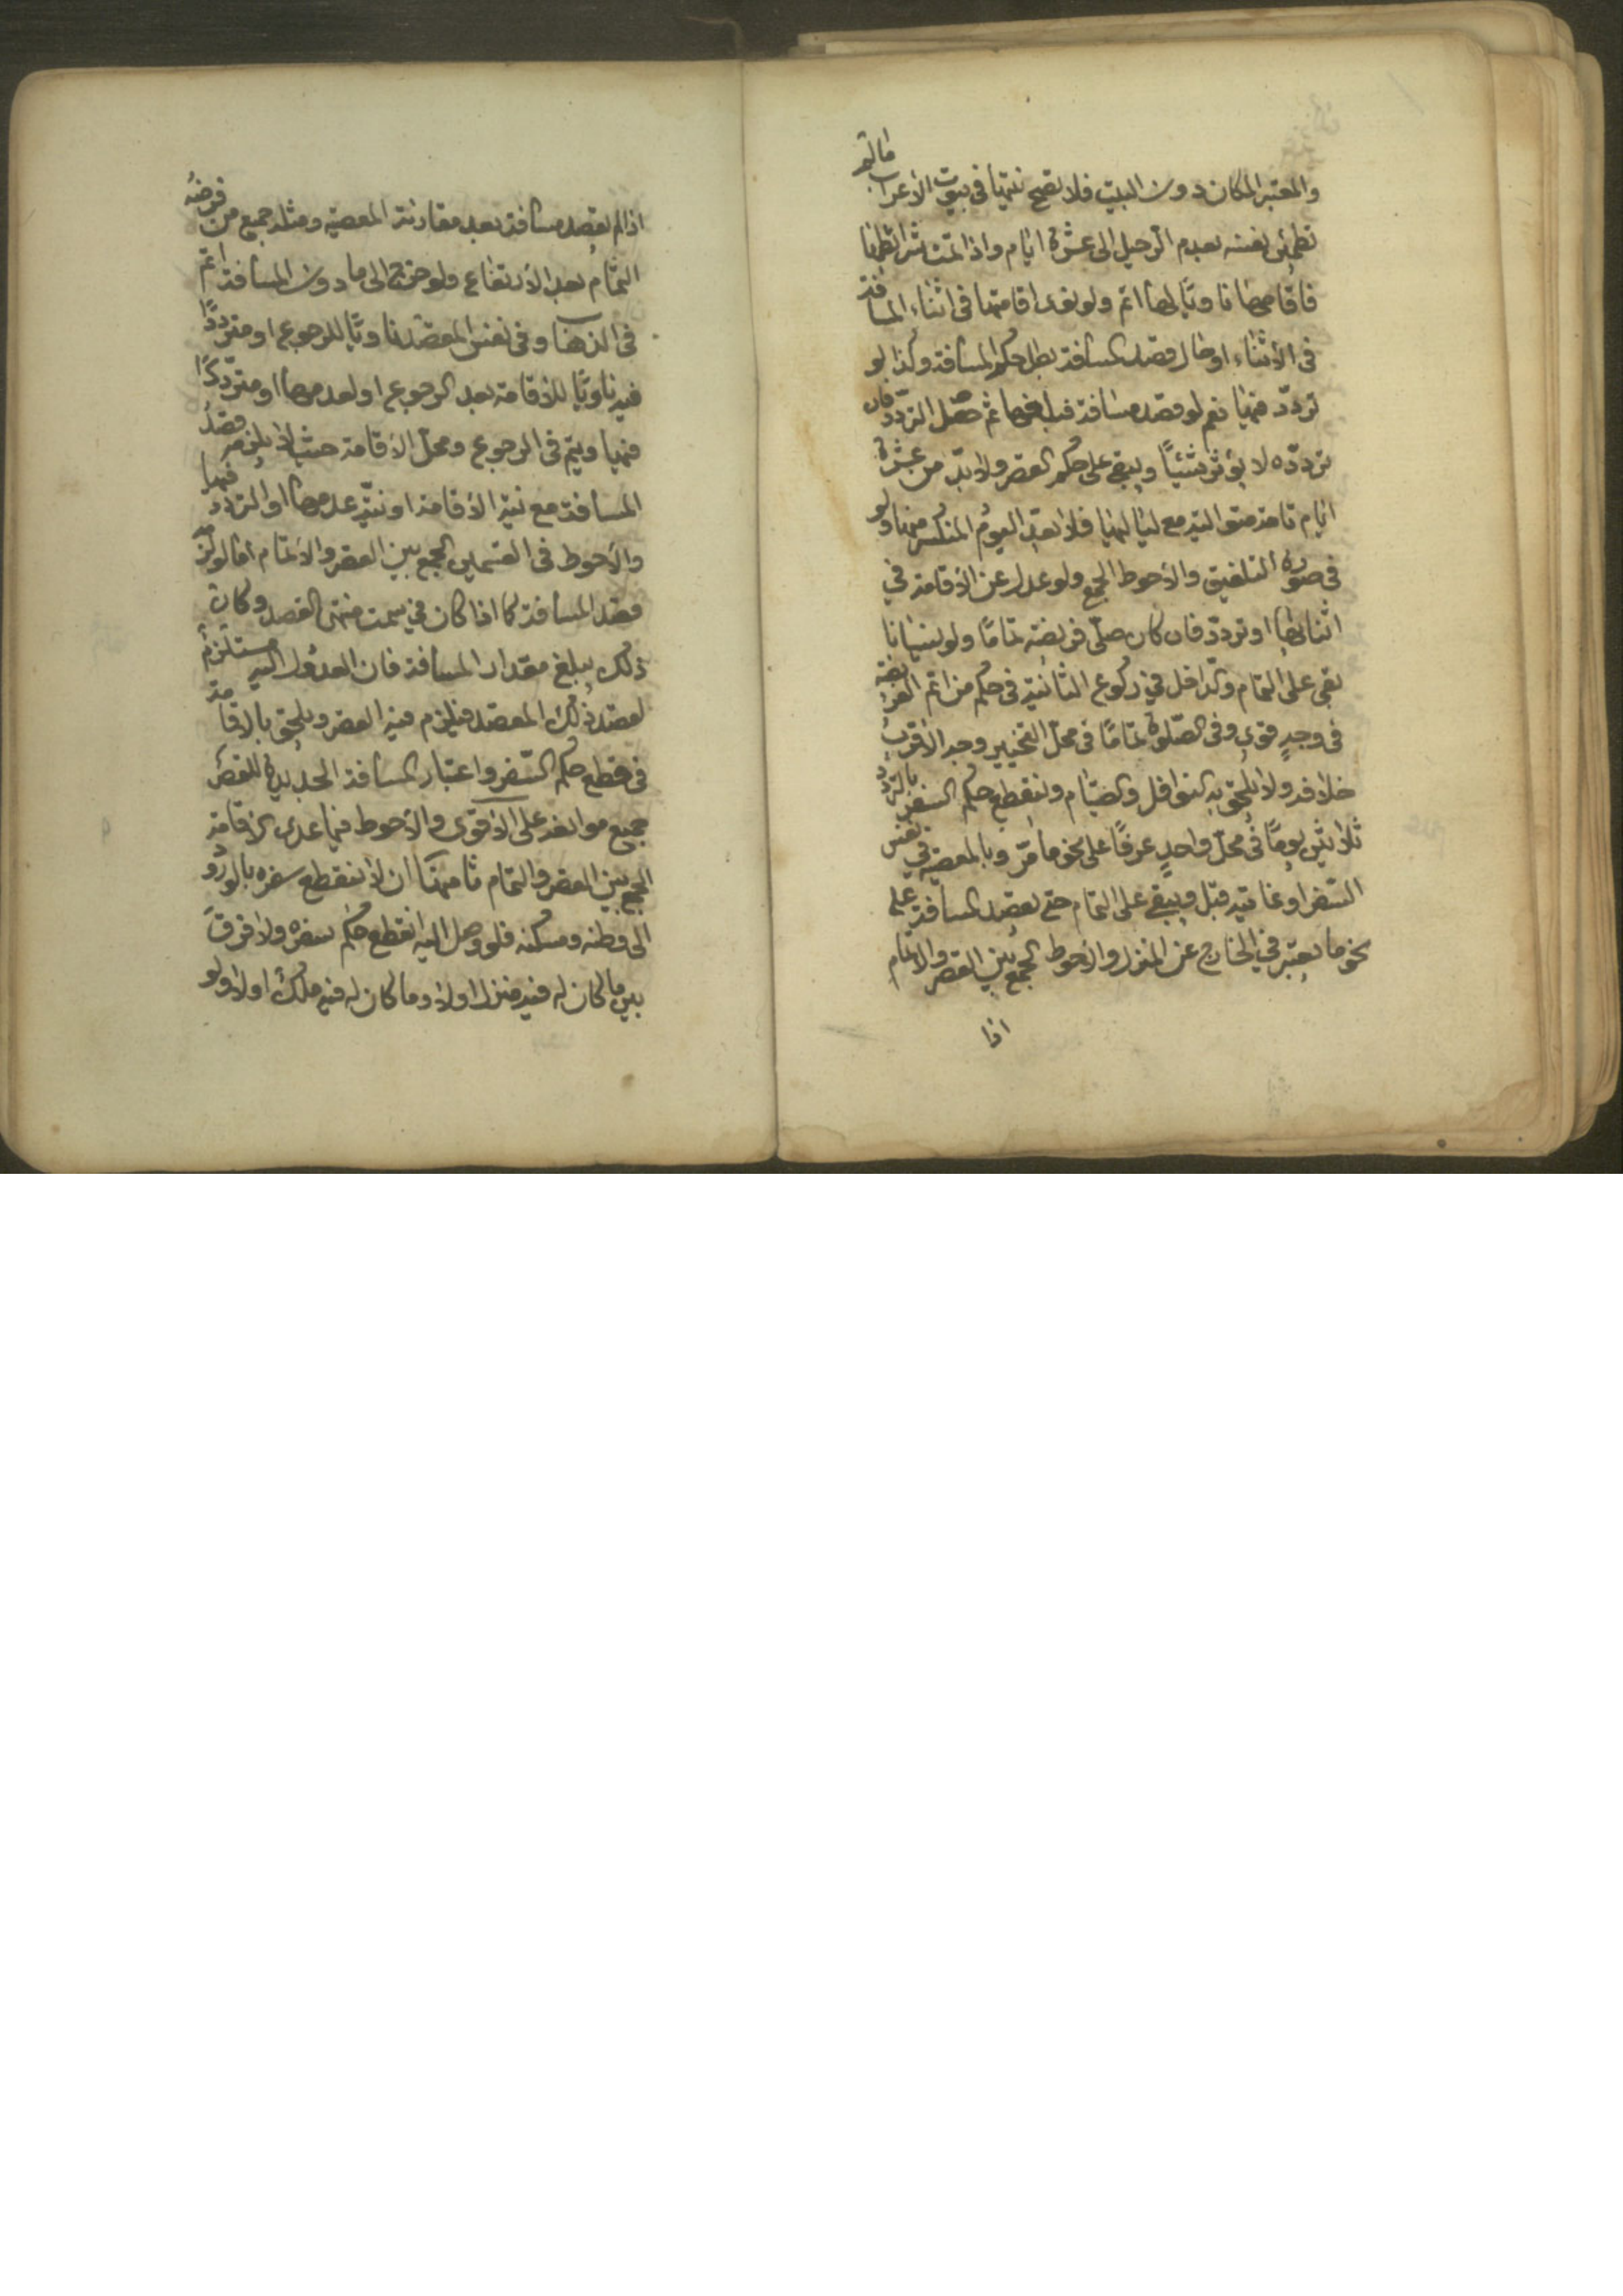 والمعتبر المكان دون البيت فلا تصح نيتها في بيوت الأعراب ما لم
تطمئن نفسه بعدم الرحيل إلى عشرة أيام وإذا تمت شرائطها
فأقامها ناويًا لها أتم ولو نوى إقامتها في أثناء المسافة
في الأثناء أو حال قصد المسافة بطل حكم المسافة وكذا لو
تردد فيها نعم لو قصد مسافة قبلها ثم حصل التردد فان
تردده لا يؤثر شيئًا ويبقى على حكم القصر ولا بد من عشرة
أيام تامة متوالية مع لياليها فلا يعد اليوم المنكسر منها ولو
في صورة التلفيق والأحوط الجمع ولو عدل عن الإقامة في
أثنائها أو تردد فان كان صلى فريضة تمامًا ولو نسيانا
بقى على التمام والداخل في ركوع الثانية في حكم من أتم الفريضة
في وجه قوى وفي الصلوة تمامًا في محل التخيير وجه الأقرب
خلافه ولا يلحق به النوافل والصيام وينقطع حكم السفر بالتردد
ثلاثين يومًا في محل واحد عرفًا على نحو ما مر وبالمعصية في نفس
السفر أو غايتيه قبل ويبقى على التمام حتى يقصد المسافة على
نحو ما يعتبر في الخارج عن المنزل والأحوط الجمع بين القصر والاتمام
اذا
اذا لم يقصد مسافة بعد مقارنة المعصية ومثله جميع من فرضه
التمام بعد الارتفاع ولو خرج إلى ما دون المسافة أتم
في الذهاب وفي نفس المقصد ناويًا للرجوع أو مترددًا
فيه ناويًا للإقامة بعد الرجوع أو لعدمها أو مترددًا
فيها ويتم في الرجوع ومحل الإقامة حيث لا يلزمه قصد
المسافة مع نية الإقامة أو نية عدمها أو التردد فيها
والأحوط في القسمين الجمع بين القصر والاتمام أما لو لزمه
قصد المسافة كما إذا كان في سمت منتهى القصد وكان
ذلك يبلغ مقدار المسافة فان العدول إليه مستلزم
لقصد ذلك المقصد فيلزم فيه القصر ويلحق بالإقامة
في قطع حكم السفر واعتبار المسافة الجديدة للقصر
جميع موانعه على الأقوى والأحوط فيما عدى الإقامة
الجمع بين القصر والتمام ثامنها أن لا ينقطع سفره بالورود
إلى وطنه ومسكنه فلو وصل إليه انقطع حكم سفره ولا فرق
بين ما كان له فيه منزل أولا وما كان له فيه ملك أولا ولو